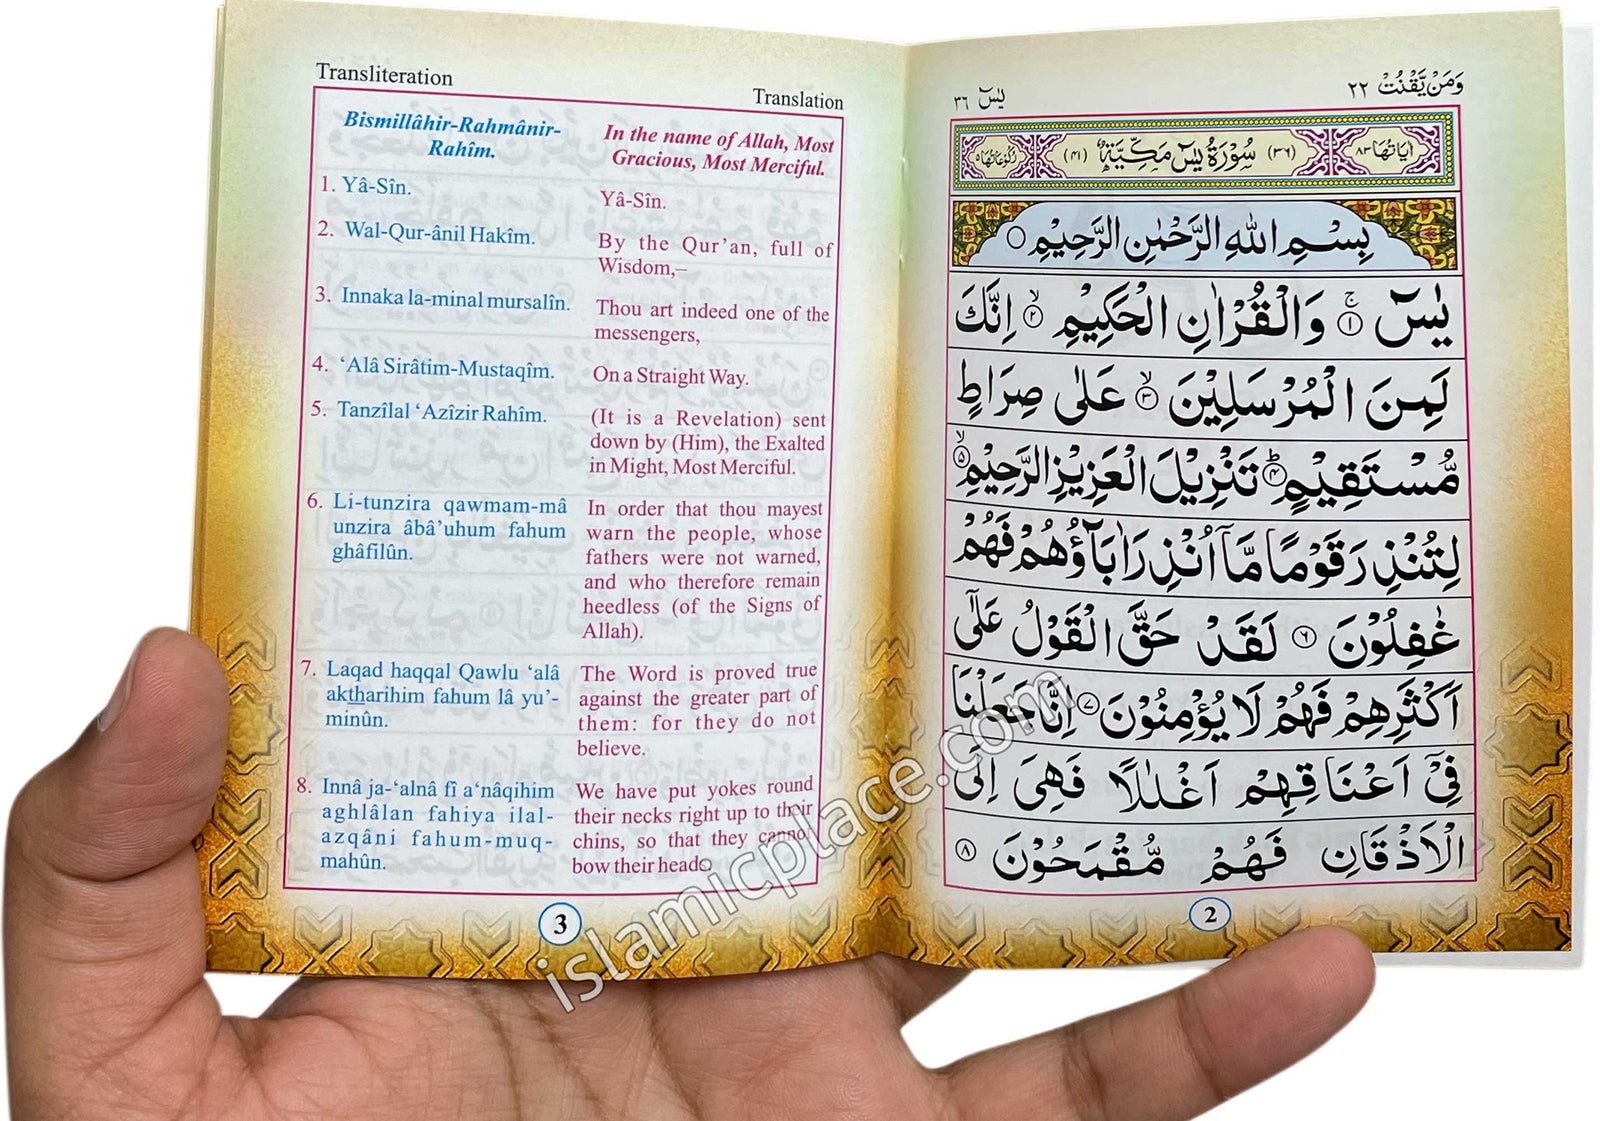 Transliteration
Translation
Bismillâhir-Rahmânir-
Rahîm.
In the name of Allah, Most
Gracious, Most Merciful.
1. Yâ-Sîn.
Yâ-Sîn.
2. Wal-Qur-ânil Hakîm.
By the Qur’an, full of
Wisdom,–
3. Innaka la-minal mursalîn.
Thou art indeed one of the
messengers,
4. ‘Alâ Sirâtim-Mustaqîm.
On a Straight Way.
5. Tanzîlal ‘Azîzir Rahîm.
(It is a Revelation) sent
down by (Him), the Exalted
in Might, Most Merciful.
6. Li-tunzira qawmam-mâ
unzira âbâ’uhum fahum
ghâfilûn.
In order that thou mayest
warn the people, whose
fathers were not warned,
and who therefore remain
heedless (of the Signs of
Allah).
7. Laqad haqqal Qawlu ‘alâ
aktharihim fahum lâ yu’-
minûn.
The Word is proved true
against the greater part of
them: for they do not
believe.
8. Innâ ja-‘alnâ fî a‘nâqihim
aghlâlan fahiya ilal-
azqâni fahum-muq-
mahûn.
We have put yokes round
their necks right up to their
chins, so that they cannot
bow their heads.
3
وَمَنْ يَّقْنُتْ ٢٢
يٰسٓ ٣٦
اٰيَاتُهَا ٨٣
(٣٦) سُوْرَةُ يٰسٓ مَكِّيَّةٌ (٤١)
رُكُوْعَاتُهَا ٥
بِسْمِ اللّٰهِ الرَّحْمٰنِ الرَّحِيْمِ ○
يٰسٓ ۚ ١ وَالْقُرْاٰنِ الْحَكِيْمِ ۙ ٢ اِنَّكَ
لَمِنَ الْمُرْسَلِيْنَ ۙ ٣ عَلٰى صِرَاطٍ
مُّسْتَقِيْمٍ ؕ ٤ تَنْزِيْلَ الْعَزِيْزِ الرَّحِيْمِ ۙ ٥
لِتُنْذِرَ قَوْمًا مَّاۤ اُنْذِرَ اٰبَآؤُهُمْ فَهُمْ
غٰفِلُوْنَ ٦ لَقَدْ حَقَّ الْقَوْلُ عَلٰٓى
اَكْثَرِهِمْ فَهُمْ لَا يُؤْمِنُوْنَ ٧ اِنَّا جَعَلْنَا
فِيْۤ اَعْنَاقِهِمْ اَغْلٰلًا فَهِيَ اِلَى
الْاَذْقَانِ فَهُمْ مُّقْمَحُوْنَ ٨
2
islamicplace.com